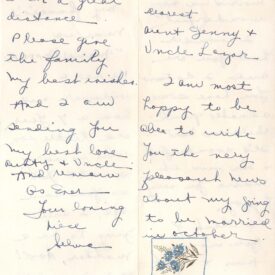 Dearest
Aunt Jenny &
Uncle Lazar
I am most
happy to be
able to write
you the very
pleasant news
about my going
to be married
in october.
a great
distance
Please give
the family
My best wishes.
And I am
sending you
my best love
Aunty & Uncle.
And remain
As Ever
Your loving
niece